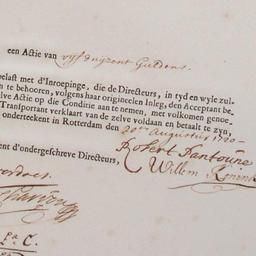 een Actie van vyfduyzent Guldens
belast met d'Inroepinge, die de Directeurs, in tyd en wyle zul-
n te behooren, volgens haar origineelen Inleg, den Acceptant be-
elve Actie op die Conditie aan te nemen, met volkomen genoe-
Transportant verklaart van de zelve voldaan en betaalt te zyn,
onderteekent in Rotterdam den 20en Augustus 1720
Robert
ent d'ondergeschreve Directeurs,
Willem